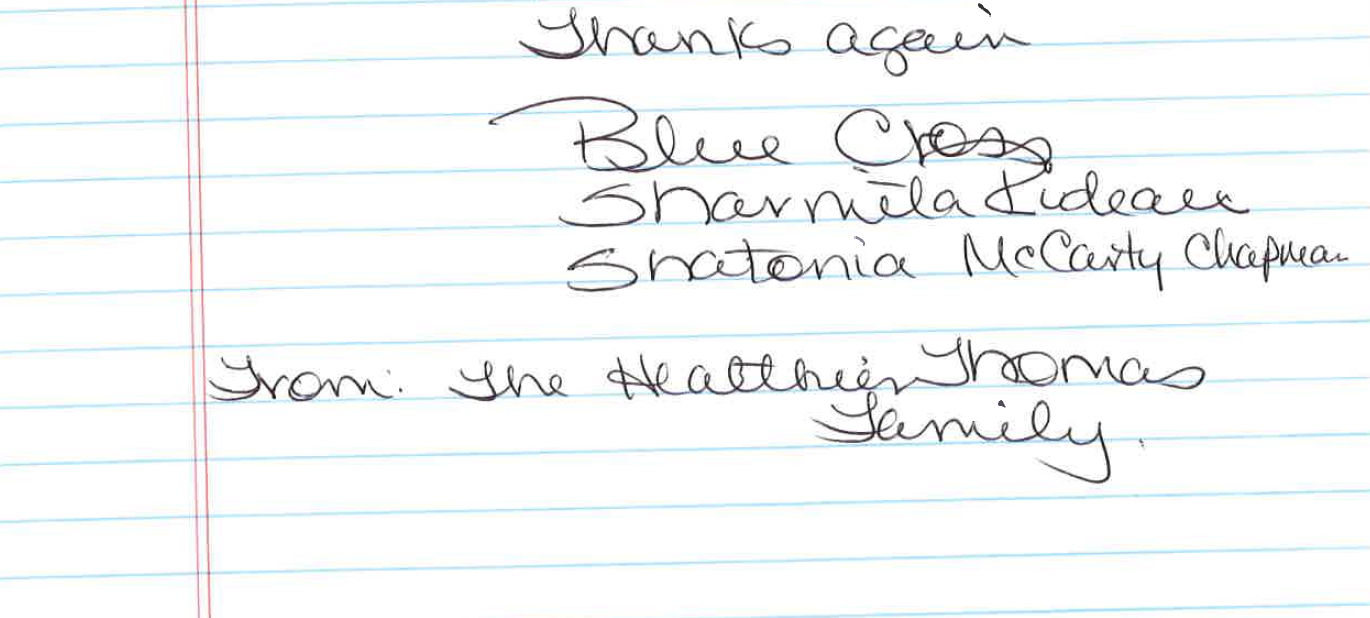 Thanks again
Blue Cross
Sharmila Rideaux
Shatonia McCarty Chapman
From: The Healthier Thomas
Family.